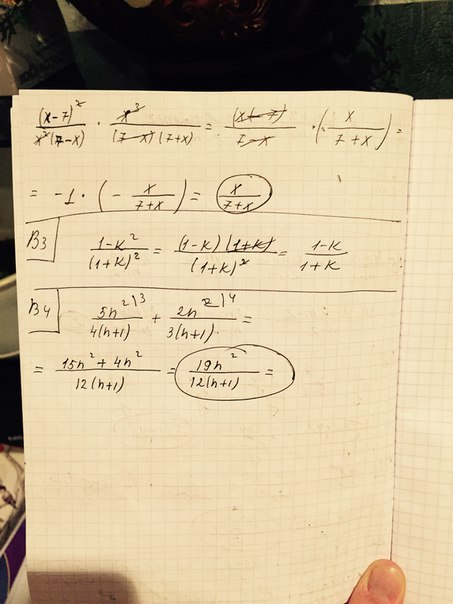 (x-7)²/x²(7-x) · x³/(7-x)(7+x) = (x-7)/7-x · (- x/7+x) =
= -1 · (- x/7+x) = x/7+x
B3 1-K²/(1+K)² = (1-K)(1+K)/(1+K)² = 1-K/1+K
B4 5n²|3/4(n+1) + 2n²|4/3(n+1) =
= 15n²+4n²/12(n+1) = 19n²/12(n+1) =